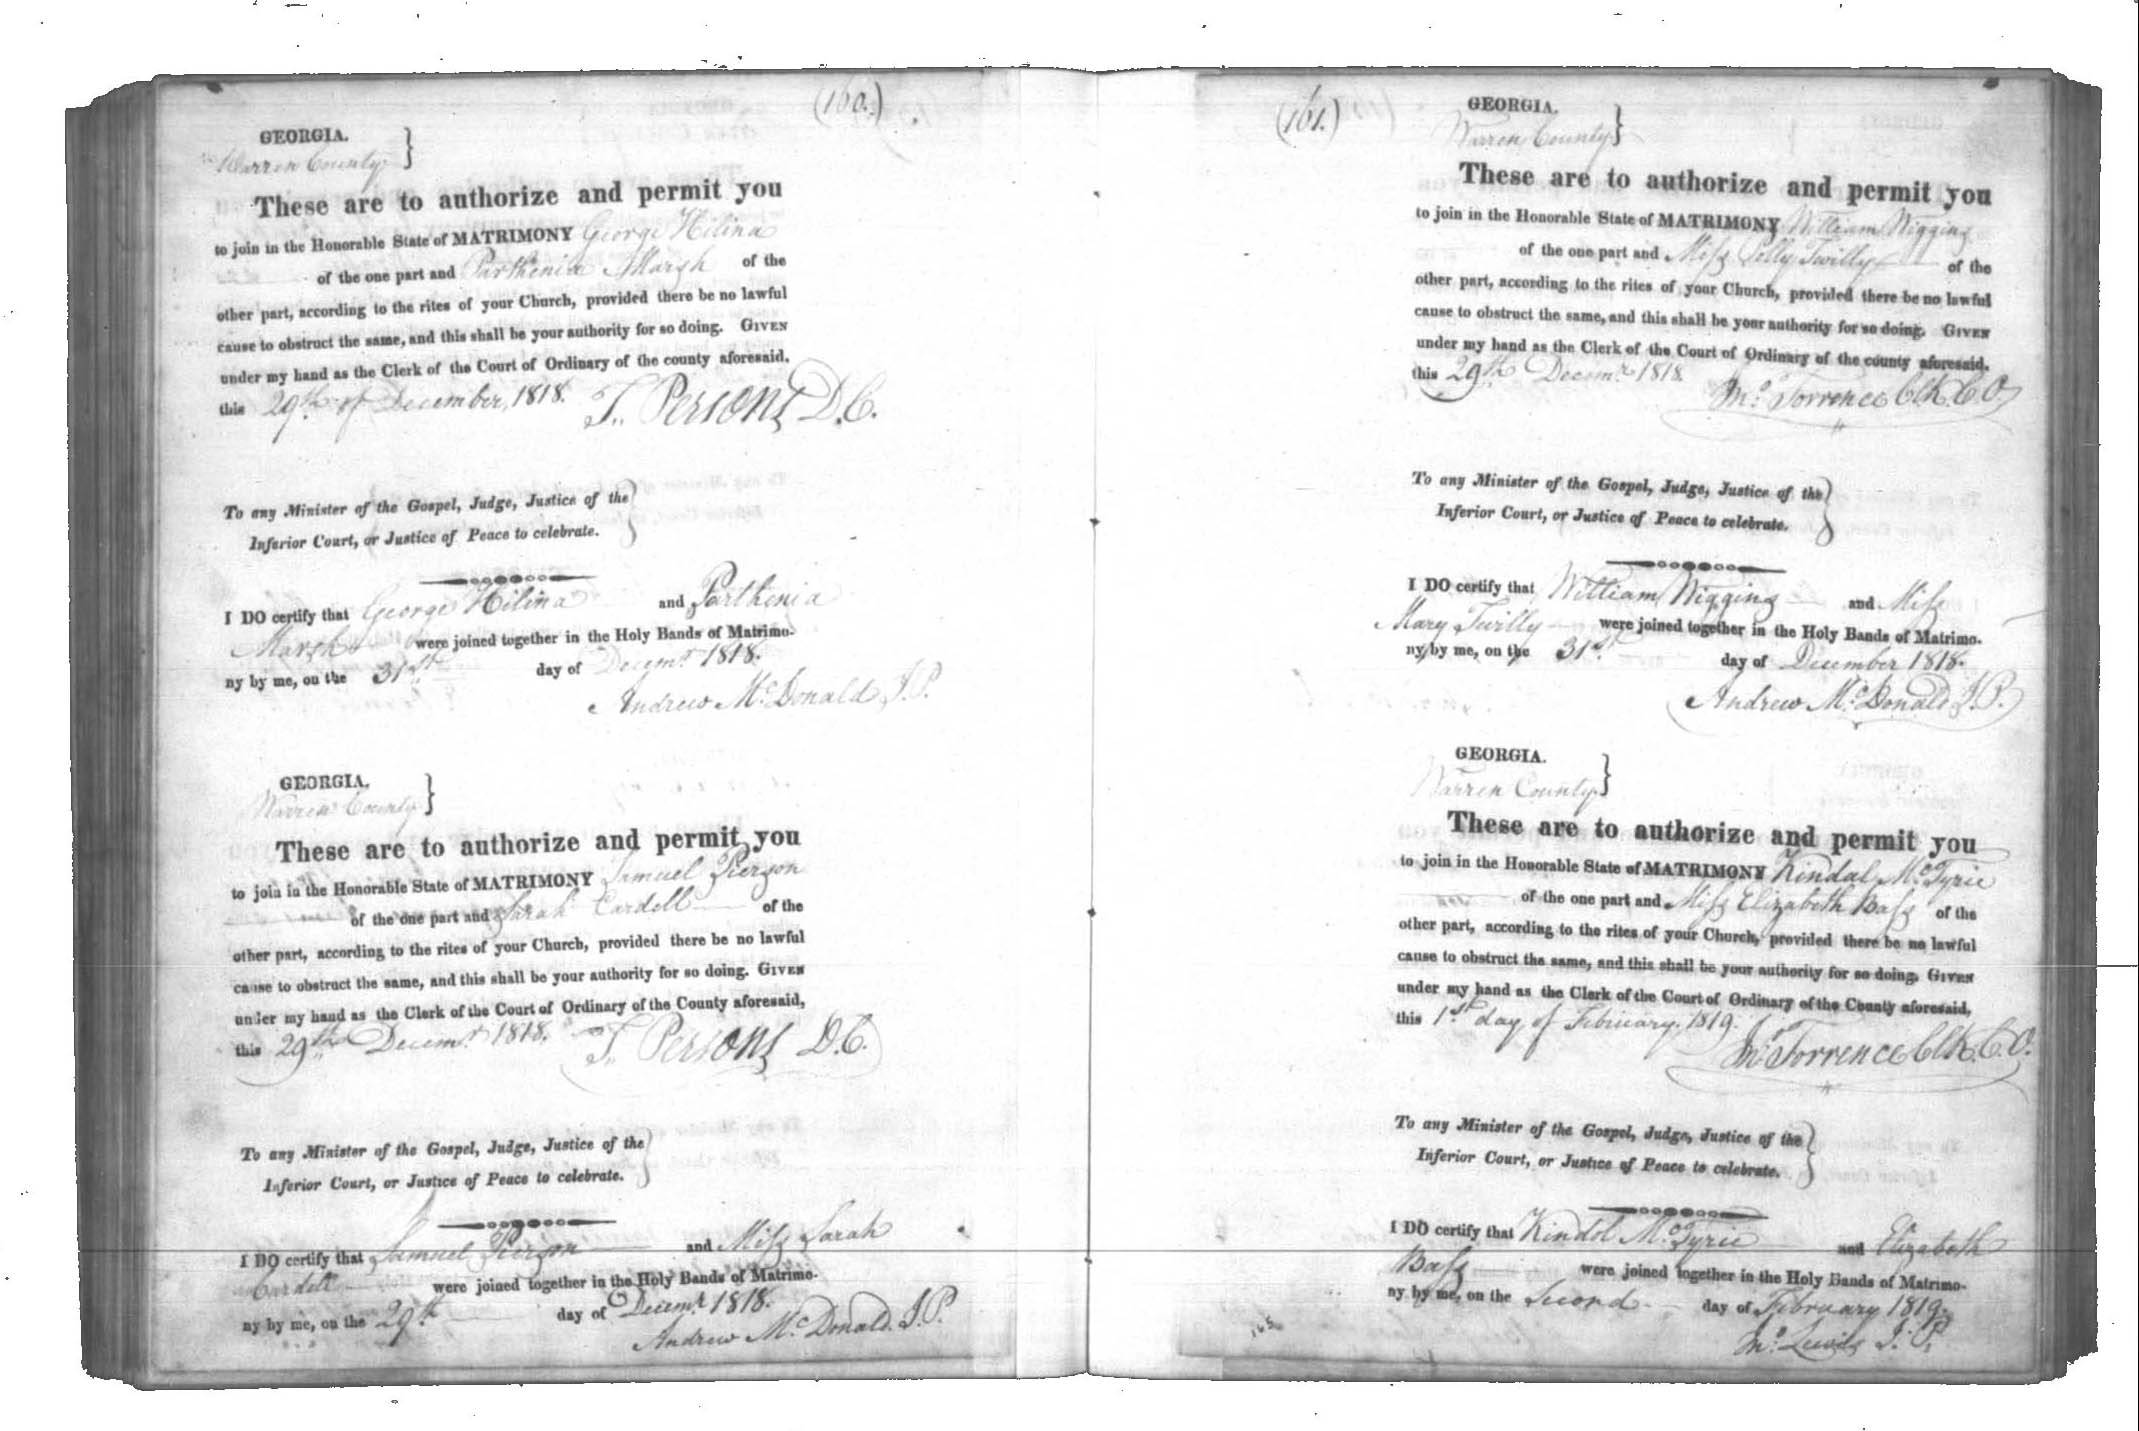 (160.)
GEORGIA.
Warren County }
These are to authorize and permit you
to join in the Honorable State of MATRIMONY George Hilina
of the one part and Parthenia Marsh of the
other part, according to the rites of your Church, provided there be no lawful
cause to obstruct the same, and this shall be your authority for so doing. GIVEN
under my hand as the Clerk of the Court of Ordinary of the county aforesaid,
this 29th of December, 1818. T. Persons D.C.
To any Minister of the Gospel, Judge, Justice of the }
Inferior Court, or Justice of Peace to celebrate.
I DO certify that George Hilina and Parthenia
Marsh were joined together in the Holy Bands of Matrimo-
ny by me, on the 31st day of Decemr 1818.
Andrew McDonald J.P.
GEORGIA,
Warren County }
These are to authorize and permit you
to join in the Honorable State of MATRIMONY Samuel Pierson
of the one part and Sarah Cardell of the
other part, according to the rites of your Church, provided there be no lawful
cause to obstruct the same, and this shall be your authority for so doing. GIVEN
under my hand as the Clerk of the Court of Ordinary of the County aforesaid,
this 29th Decemr 1818. T. Persons D.C.
To any Minister of the Gospel, Judge, Justice of the }
Inferior Court, or Justice of Peace to celebrate.
I DO certify that Samuel Pierson and Miss Sarah
Cardell were joined together in the Holy Bands of Matrimo-
ny by me, on the 29th day of Decemr 1818.
Andrew McDonald J.P.
(161.)
GEORGIA.
Warren County }
These are to authorize and permit you
to join in the Honorable State of MATRIMONY William Wiggins
of the one part and Miss Polly Twilly of the
other part, according to the rites of your Church, provided there be no lawful
cause to obstruct the same, and this shall be your authority for so doing. GIVEN
under my hand as the Clerk of the Court of Ordinary of the county aforesaid,
this 29th Decemr 1818 Jno Torrence Clk. C.O.
To any Minister of the Gospel, Judge, Justice of the }
Inferior Court, or Justice of Peace to celebrate.
I DO certify that William Wiggins and Miss
Mary Twilly were joined together in the Holy Bands of Matrimo-
ny by me, on the 31st day of December 1818.
Andrew McDonald J.P.
GEORGIA.
Warren County }
These are to authorize and permit you
to join in the Honorable State of MATRIMONY Kindal McTyrie
of the one part and Miss Elizabeth Bass of the
other part, according to the rites of your Church, provided there be no lawful
cause to obstruct the same, and this shall be your authority for so doing. GIVEN
under my hand as the Clerk of the Court of Ordinary of the County aforesaid,
this 1st day of February, 1819. Jno Torrence Clk. C.O.
To any Minister of the Gospel, Judge, Justice of the }
Inferior Court, or Justice of Peace to celebrate.
I DO certify that Kindol McTyrie and Elizabeth
Bass were joined together in the Holy Bands of Matrimo-
ny by me, on the Second day of February 1819.
Jno Lewis J.P.
165